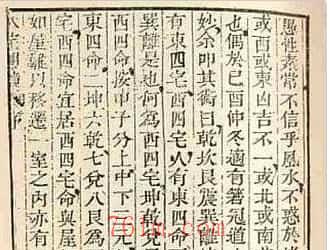 愚性素常不信乎風水不惑於
或西或東凶吉不一或北或南
也偶於己酉仲冬適有箬冠道
妙余叩其術曰乾坎艮震巽離
有東四宅西四宅人有東四命
巽離是也何為西四宅坤乾兌
西四命按甲子分上中下元
東四命二坤六乾七兌八艮為
宅西四命宜居西四宅命與屋
如屋難以移遷一室之內亦有